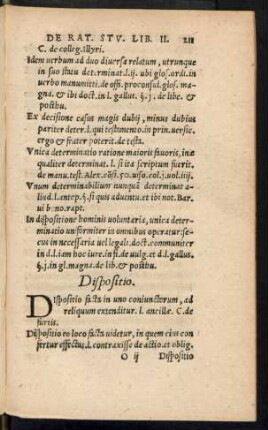 DE RAT. STV. LIB. II. 211
C. de colleg. Illyri.
Idem verbum ad duo diuersa relatum, utrunque
in suo statu determinat. l. ij. ubi glos. ordi. in
uerbo manumitti. de offi. proconsul. glos. mag-
na. & ibi doct. in l. gallus. §. j. de libe. &
posthu.
Ex decisione casus magis dubij, minus dubius
pariter deter. l. qui testamento. in prin. uersic.
ergo & frater poterit. de testa.
Vnica determinatio ratione maioris fauoris, inæ
qualiter determinat. l. si ita scriptum fuerit.
de manu. test. Alex. cōsi. 50. uiso. col. j. uol. iiij.
Vnum determinabilium nunquā determinat a-
liud. l. antep. §. si quis aduentu. et ibi not. Bar.
ui b. no. rapt.
In dispositione hominis voluntaria, unica deter-
minatio uniformiter in omnibus operatur: se-
cus in necessaria uel legali. doct. communiter
in d. l. iam hoc iure. in fi. de uulg. et d. l. gallus.
§. j. in gl. magna. de lib. & posthu.
Dispositio.
Dispositio facta in uno coniunctorum, ad
reliquum extenditur. l. ancillæ. C. de
furtis.
Dispositio eo loco facta uidetur, in quem eius con
fertur effectus. l. contraxisse. de actio. et oblig.
O ij Dispositio